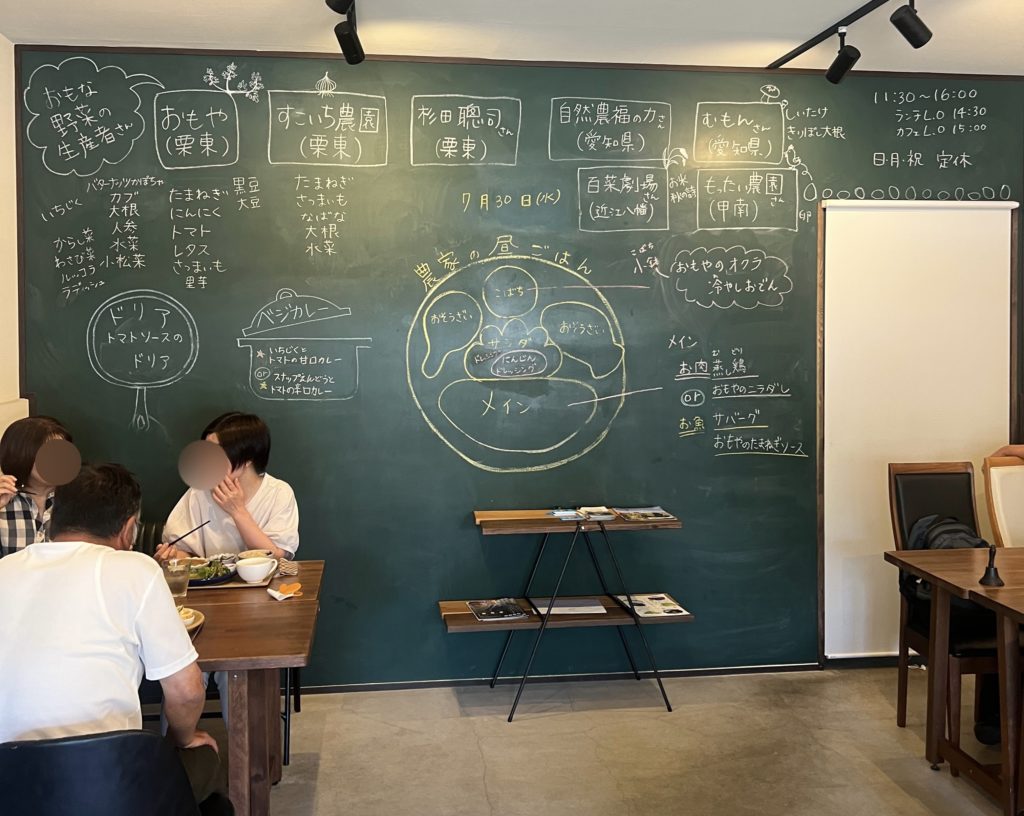 おもな
野菜の
生産者さん
おもや
(栗東)
すこいち農園
(栗東)
杉田聰司さん
(栗東)
自然農福の力さん
(愛知県)
むもんさん
(愛知県)
しいたけ
きりぼし大根
百菜劇場さん
(近江八幡)
お米
もったい農園さん
(甲南)
卵
11:30~16:00
ランチL.O 14:30
カフェL.O 15:00
日・月・祝 定休
いちじく
からし菜
わさび菜
ルッコラ
ラディッシュ
バターナッツかぼちゃ
カブ
大根
人参
水菜
小松菜
たまねぎ
にんにく
トマト
レタス
さつまいも
里芋
黒豆
大豆
たまねぎ
さつまいも
なばな
大根
水菜
7月30日(水)
農家の昼ごはん
こばち
おそうざい
おそうざい
サラダ
ドレッシング
にんじん
ドレッシング
メイン
こばち
小鉢
おもやのオクラ
冷やしおでん
メイン
お肉 蒸し鶏
むどり
or おもやのニラダレ
お魚 サバーグ
おもやのたまねぎソース
ドリア
トマトソースの
ドリア
ベジカレー
★いちじくと
トマトの甘口カレー
or スナップえんどうと
★トマトの辛口カレー